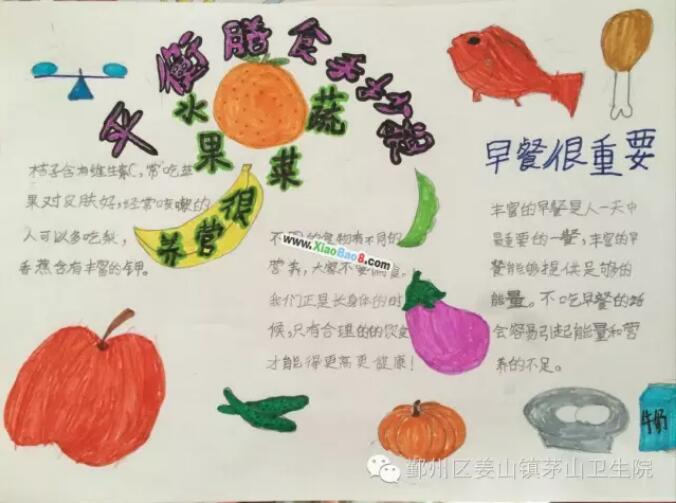 平衡膳食
水果蔬菜
很营养
桔子含有维生素C,常吃苹
果对皮肤好,经常咳嗽的
人可以多吃梨,
香蕉含有丰富的钾。
www.XiaoBao8.com
不同的食物有不同的
营养,大家不要偏食。
我们正是长身体的时
候,只有合理的的饮食
才能得更高更健康!
早餐很重要
丰富的早餐是人一天中
最重要的一餐,丰富的早
餐能够提供足够的
能量。不吃早餐的话
会容易引起能量和营
养的不足。
牛奶
鄞州区姜山镇茅山卫生院